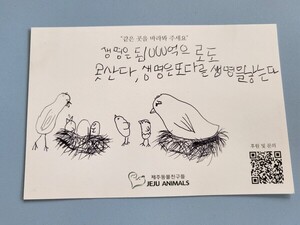 "같은 곳을 바라봐 주세요"
생명은 돈 100억으로도
못산다, 생명은 또다른 생명을 낳는다
후원 및 문의
제주동물친구들
JEJU ANIMALS